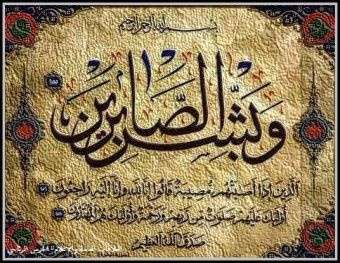 بسم الله الرحمن الرحيم
وبشر الصابرين ١٥٥
الذين اذا اصابتهم مصيبة قالوا انا لله وانا اليه راجعون ١٥٦
اولئك عليهم صلوات من ربهم ورحمة واولئك هم المهتدون ١٥٧
صدق الله العظيم